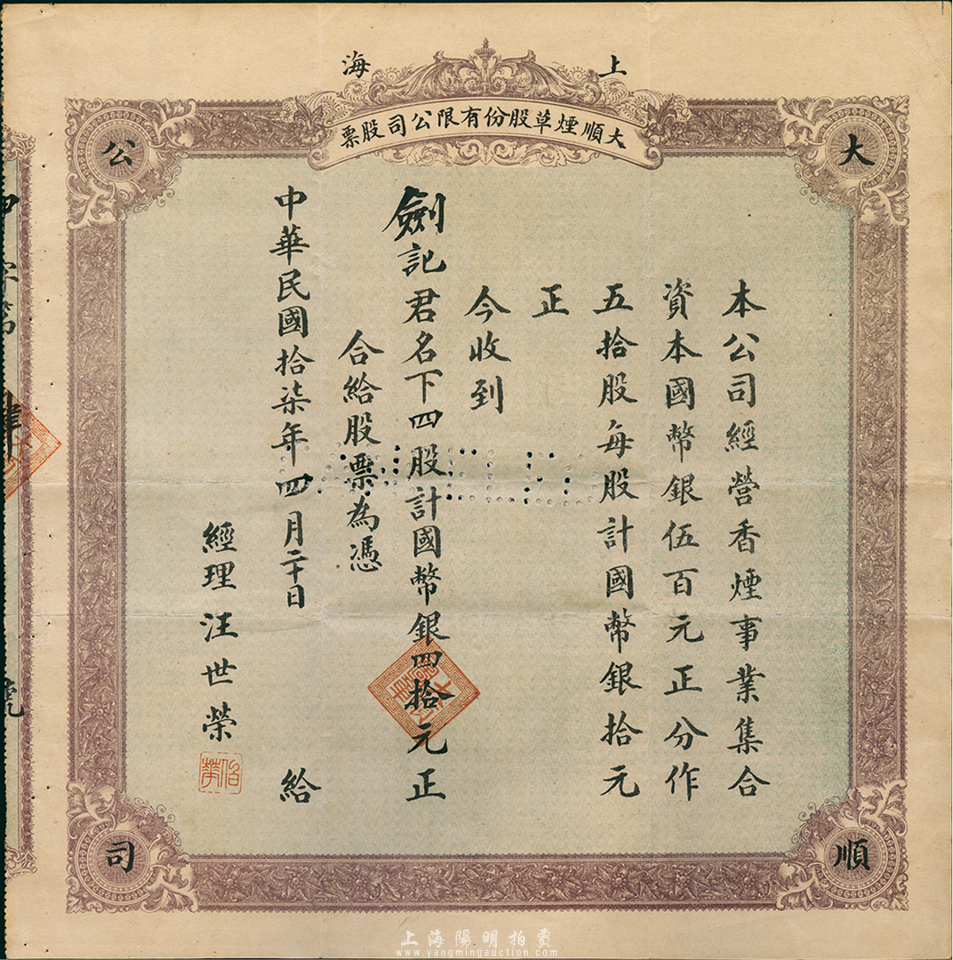 上海
大順煙草股份有限公司股票
大順公司
本公司經營香煙事業集合
資本國幣銀伍百元正分作
五拾股每股計國幣銀拾元
正
今收到
劍記君名下四股計國幣銀四拾元正
合給股票為憑
中華民國拾柒年四月二十日
給
經理汪世榮
號
上海陽明拍賣
www.yangmingauction.com